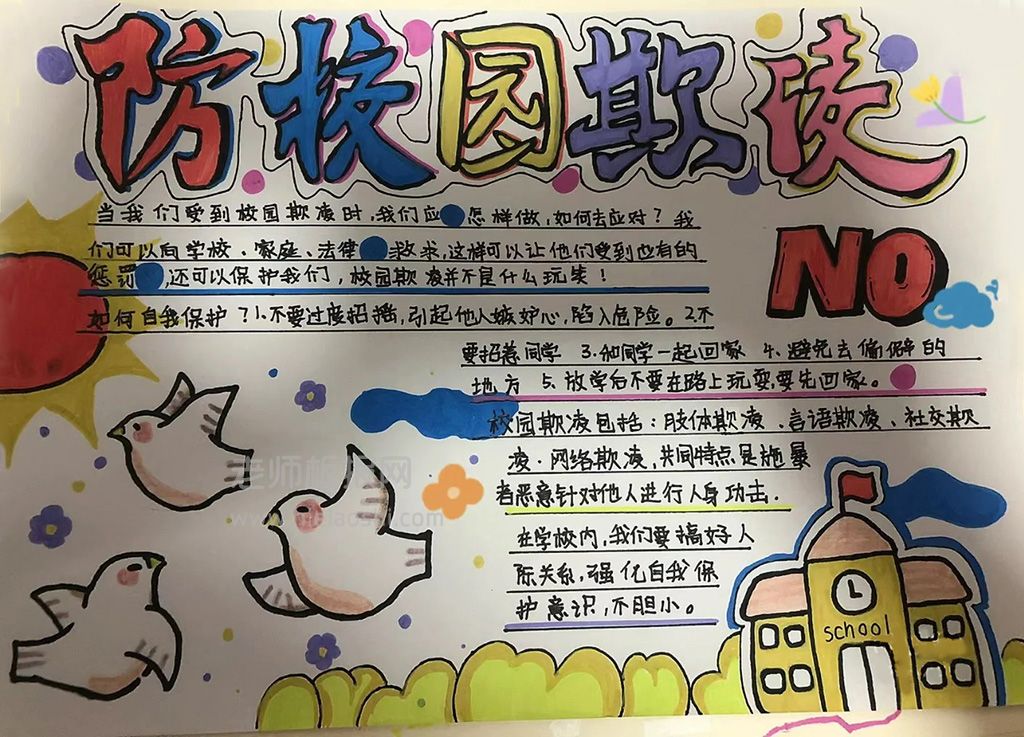 防校园欺凌
当我们受到校园欺凌时,我们应怎样做,如何去应对?我
们可以向学校、家庭、法律求救,这样可以让他们受到应有的
惩罚,还可以保护我们,校园欺凌并不是什么玩笑!
NO
如何自我保护?1.不要过度招摇,引起他人嫉妒心,陷入危险。2.不
要招惹同学 3.和同学一起回家 4.避免去偏僻的
地方 5.放学后不要在路上玩耍,要先回家。
校园欺凌包括:肢体欺凌、言语欺凌、社交欺
凌·网络欺凌,共同特点是施暴
者恶意针对他人进行人身功击.
在学校内,我们要搞好人
际关系,强化自我保
护意识,不胆小。
school